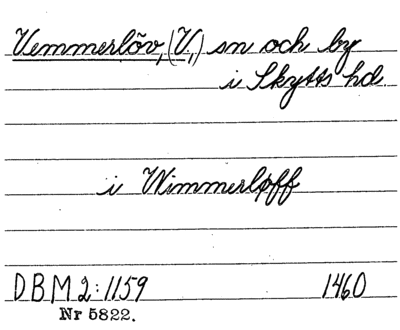 Vemmerlöv, (V.,) sn och by
i Skytts hd.
i Wimmerløff
DBM 2:1159 1460
Nr 5822.